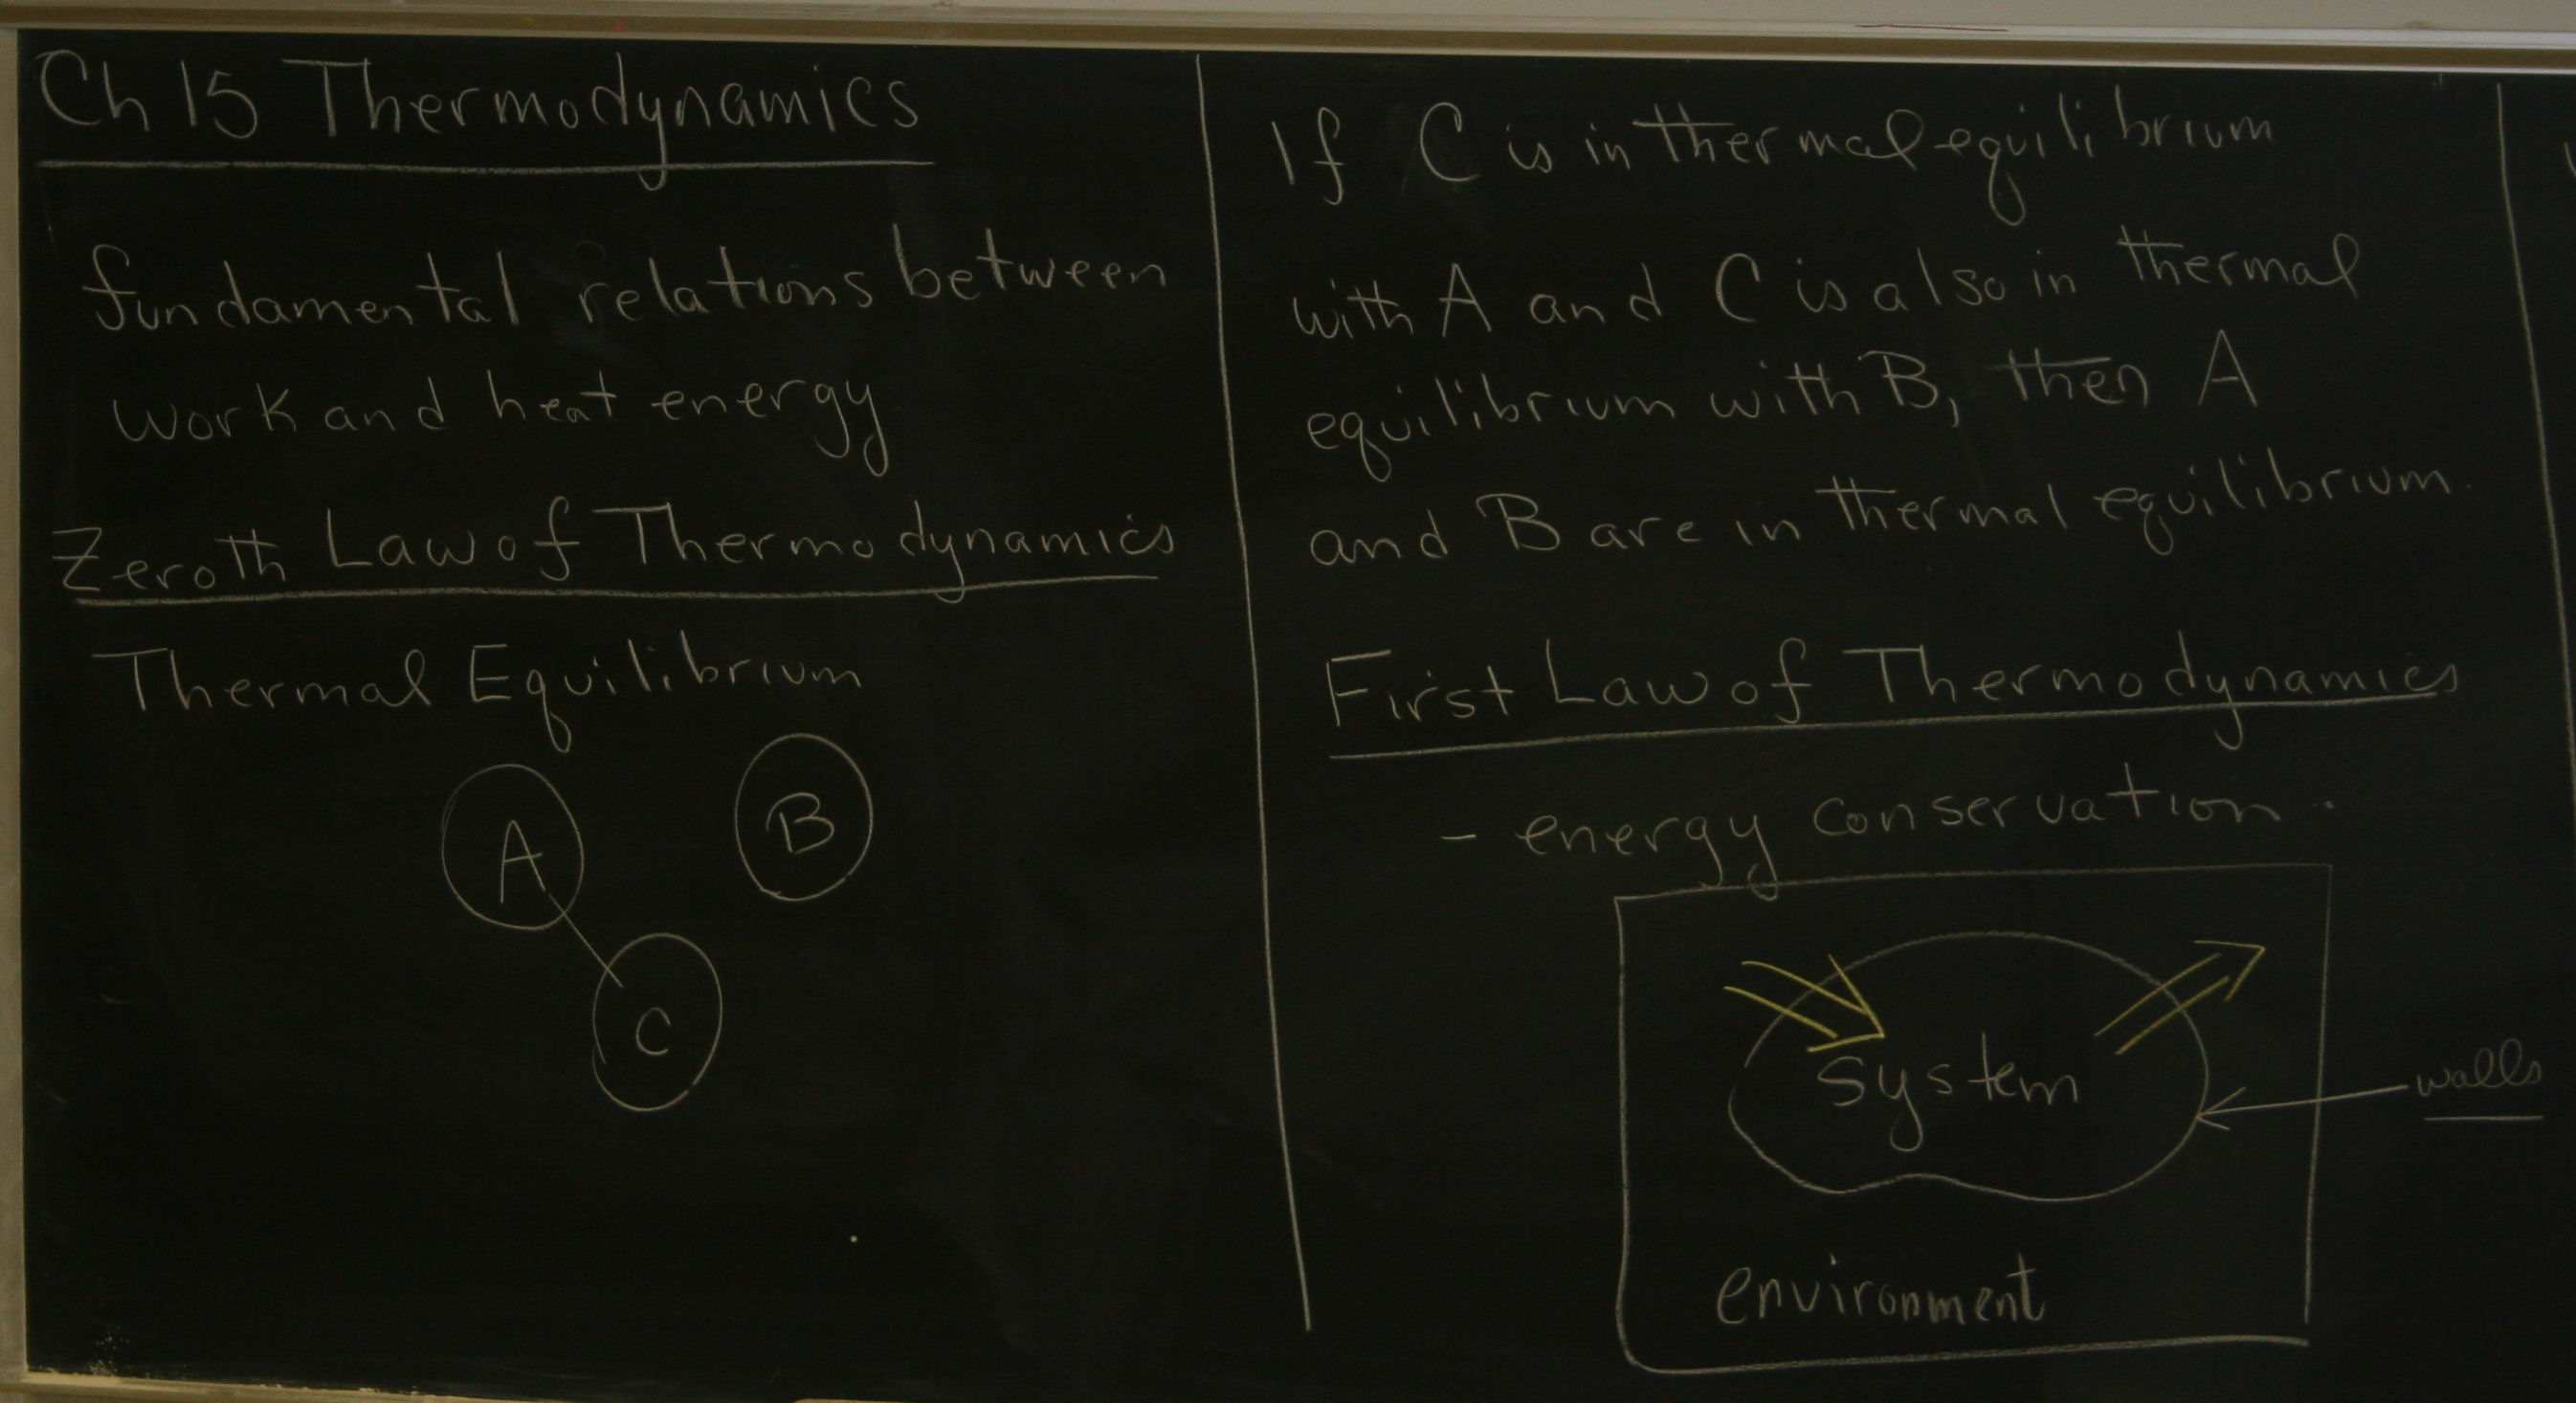 Ch 15 Thermodynamics
fundamental relations between
work and heat energy
Zeroth Law of Thermodynamics
Thermal Equilibrium
A
B
C
If C is in thermal equilibrium
with A and C is also in thermal
equilibrium with B, then A
and B are in thermal equilibrium.
First Law of Thermodynamics
- energy conservation.
system
walls
environment